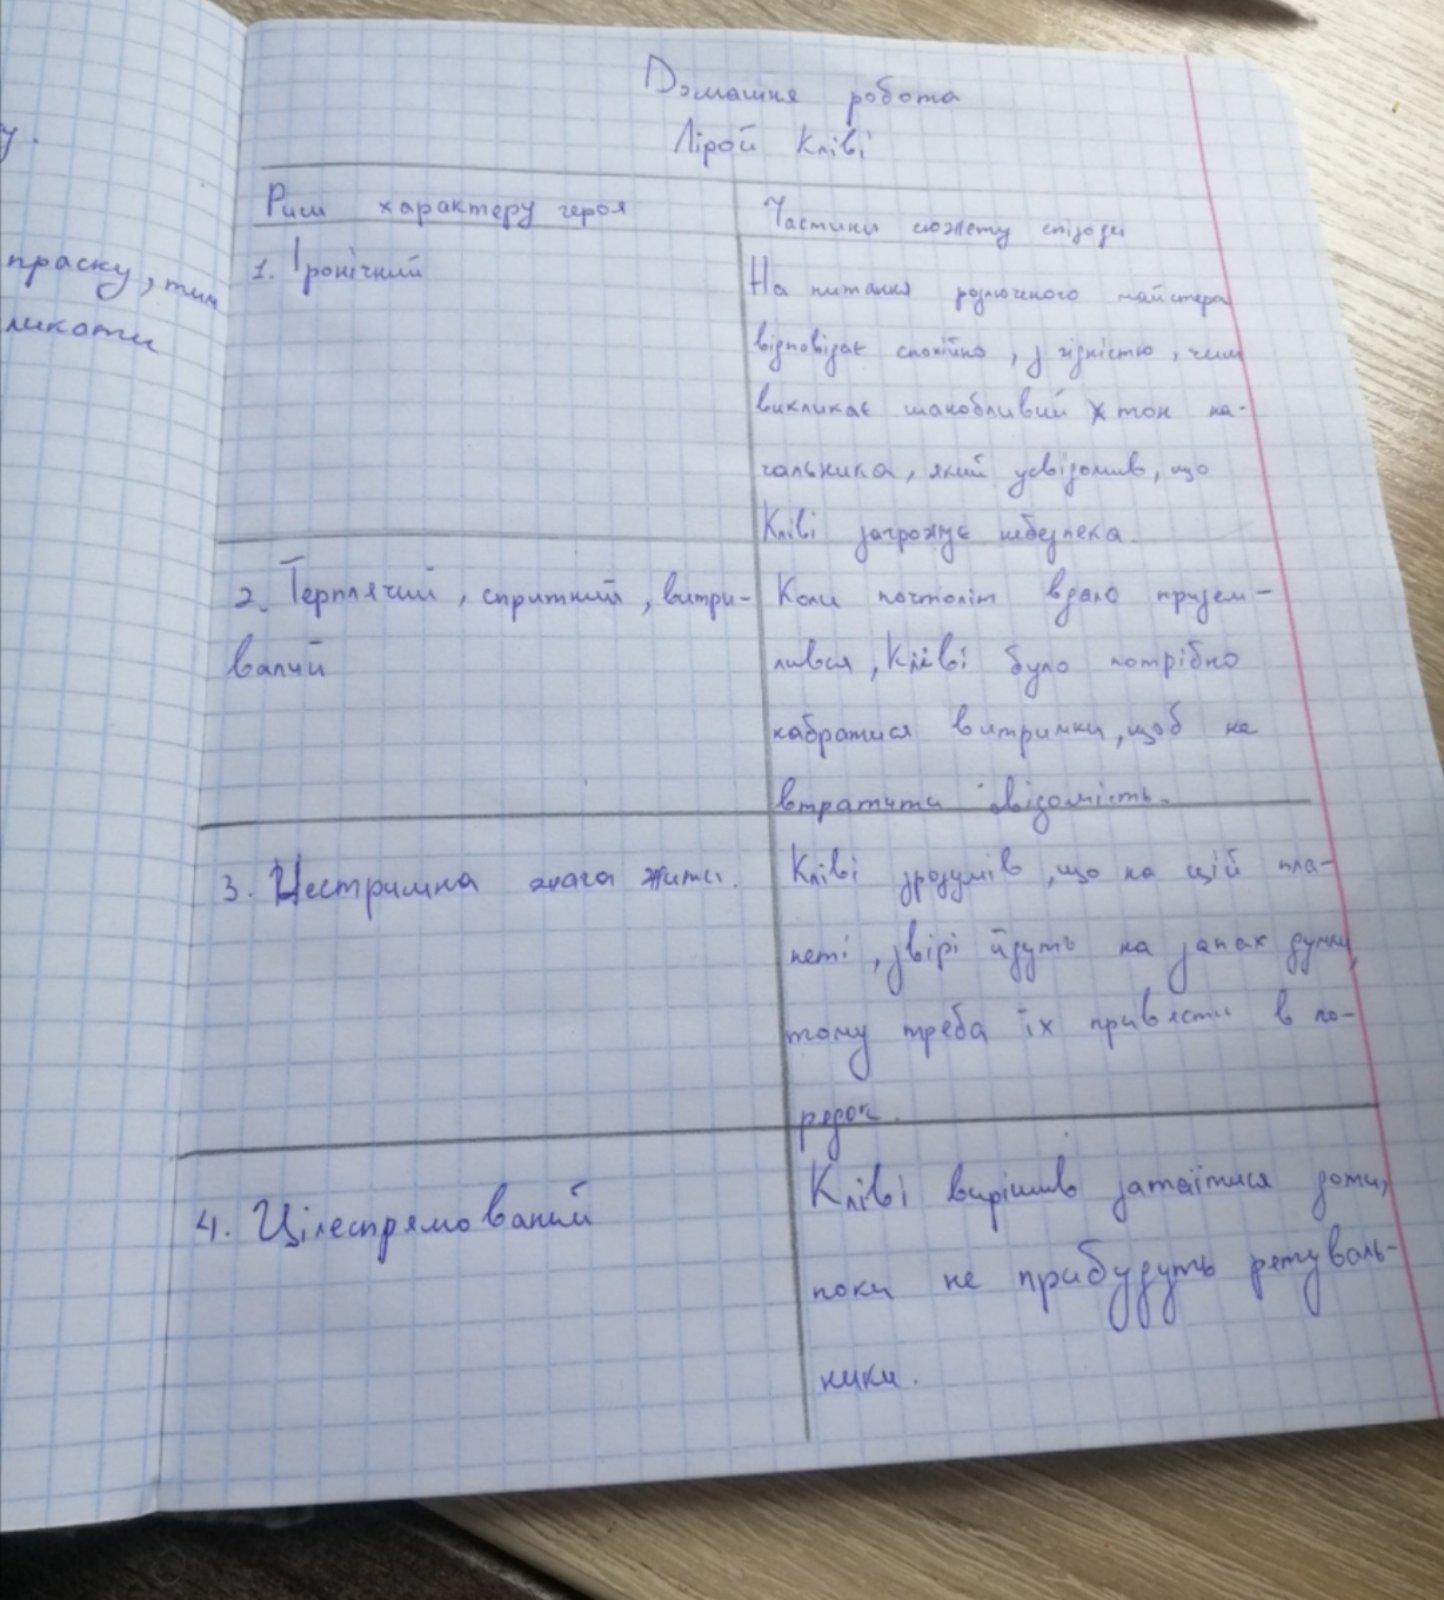 у.
праску, тим
ликати
Домашня робота
Лірой Кліві
Риси характеру героя
Частини сюжету епізоди
1. Іронічний
На питання розлюченого майстера
відповідає спокійно, з гідністю, чим
викликає шанобливий тон на-
чальника, який усвідомив, що
Кліві загрожує небезпека.
2. Терплячий, спритний, витри-
валий
Коли поштоліт вдало призем-
лився, Кліві було потрібно
набратися витримки, щоб не
втратити свідомість.
3. Нестримна жага життя.
Кліві зрозумів, що на цій пла-
неті, звірі йдуть на запах думки,
тому треба їх привести в по-
рядок.
4. Цілеспрямований
Кліві вирішив затаїтися доти,
поки не прибудуть рятуваль-
ники.